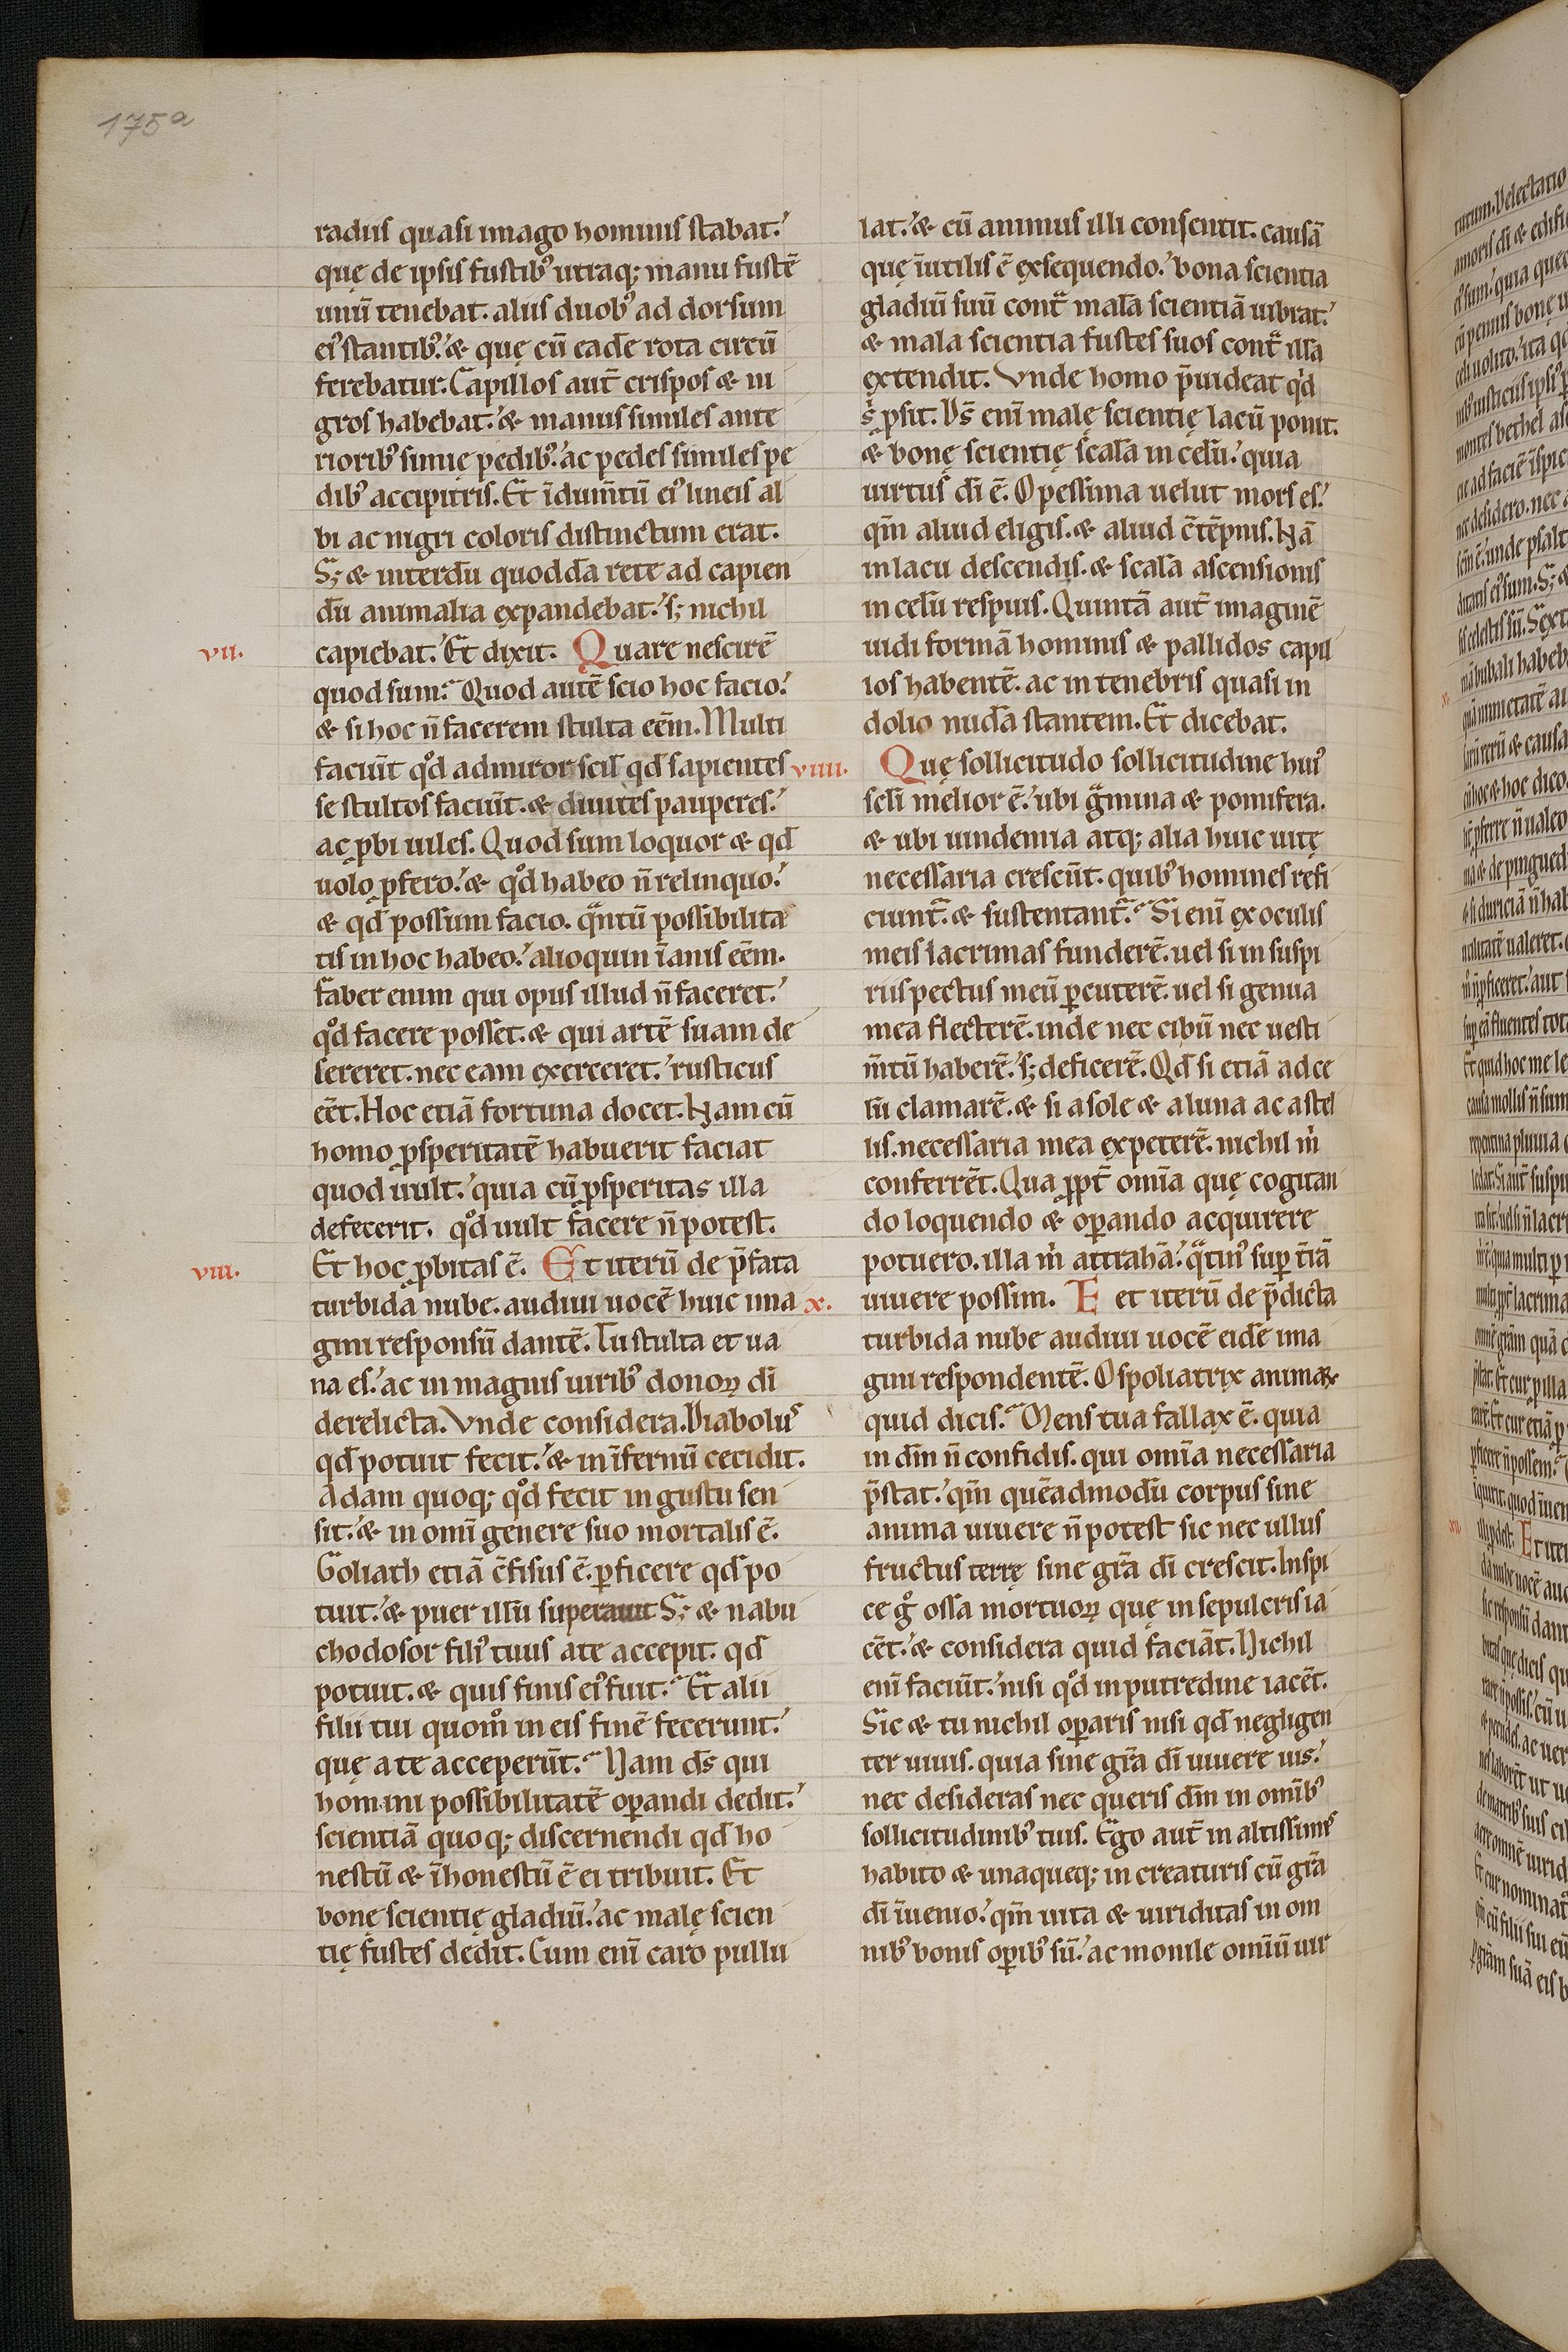 175a
radiis quasi imago hominis stabat.
quę de ipsis fustib' utraq; manu fustē
unū tenebat. aliis duob' ad dorsum
ei' stantib'. & quę cū eadē rota circū
ferebatur. Capillos aut̄ crispos & ni
gros habebat. & manus similes ante
riorib' simię pedib'. ac pedes similes pe
dib' accipitris. Et īdum̄tū ei' lineis al
bi ac nigri coloris distinctum erat.
S; & interdū quoddā rete ad capien
dū animalia expandebat. s; nichil
vii. capiebat. Et dixit. Quare nescirē
quod sum? Quod autē scio hoc facio.
& si hoc n̄ facerem stulta eēm. Multi
faciūt qd̊ admiror scil' qd̄ sapientes
se stultos faciūt. & diuites pauperes.
ac ꝓbi uiles. Quod sum loquor & qd̄
uolo ꝓfero. & qd̊ habeo n̄ relinquo.
& qd̄ possum facio. qᵃntū possibilita
tis in hoc habeo. alioquin īanis eēm.
faber enim qui opus illud n̄ faceret.
qd̊ facere posset. & qui artē suam de
sereret. nec eam exerceret. rusticus
eēt. Hoc etiā fortuna docet. Nam cū
homo ꝓsperitatē habuerit faciat
quod uult. quia cū ꝓsperitas illa
defecerit. qd̊ uult facere n̄ potest.
viii. Et hoc ꝓbitas ē. Et iterū de p̄fata
turbida nube. audiui uocē huic ima
gini responsū dantē. Tu stulta et ua
na es. ac in magnis uirib' donoꝝ dī
derelicta. Vnde considera. Diabolus
qd̄ potuit fecit. & in īfernū cecidit.
Adam quoq; qd̊ fecit in gustu sen
sit. & in omī genere suo mortalis ē.
Goliath etiā c̄fisus ē. ꝑficere qd̄ po
tuit. & puer illū superauit S; & nabu
chodosor fili' tuus a te accepit. qd̄
potuit. & quis finis ei' fuit? Et alii
filii tui quom̊ in eis finē fecerunt.
quę a te acceperūt? Nam ds̄ qui
homini possibilitatē oꝑandi dedit.
scientiā quoq; discernendi qd̄ ho
nestū & īhonestū ē ei tribuit. Et
bonę scientię gladiū. ac malę scien
tię fustes dedit. Cum enī caro pullu
lat. & cū animus illi consentit. causā
quę īutilis ē exsequendo. bona scientia
gladiū suū contᵃ malā scientiā uibrat.
& mala scientia fustes suos contᵃ illā
extendit. Vnde homo p̄uideat qd̄
s' ꝓsit. Ds̄ enī malę scientię lacū ponit.
& bonę scientię scalā in celū. quia
uirtus dī ē. O pessima uelut mors es.
qm̄ aliud eligis. & aliud c̄tēpnis. Nā
in lacū descendis. & scalā ascensionis
in celū respuis. Quintā aut̄ imaginē
uidi formā hominis & pallidos capil
los habentē. ac in tenebris quasi in
dolio nudā stantem. Et dicebat.
viiii. Quę sollicitudo sollicitudine hui'
sclī melior ē. ubi gᵃmina & pomifera.
& ubi uindemia atq; alia huic uitę
necessaria crescūt. quib' homines refi
ciunt̄. & sustentant̄? Si enī ex oculis
meis lacrimas funderē. uel si in suspi
riis pectus meū ꝑcuterē. uel si genua
mea flecterē. inde nec cibū nec uesti
m̄tū haberē. s; deficerē. Qd̄ si etiā ad ce
lū clamarē. & si a sole & a luna ac a stel
lis. necessaria mea expeterē. nichil m̄
conferrēt. Qua ꝓpt̄ omīa quę cogitan
do loquendo & oꝑando acquirere
potuero. illa m̄ attrahā. qᵃtin' suꝑ t̄rā
x. uiuere possim. E et iterū de p̄dicta
turbida nube audiui uocē eidē ima
gini respondentē. O spoliatrix animaꝝ
quid dicis? Mens tua fallax ē. quia
in dm̄ n̄ confidis. qui omīa necessaria
p̄stat. qm̄ quēadmodū corpus sine
anima uiuere n̄ potest sic nec ullus
fructus terrę sine grā dī crescit. Inspi
ce g̊ ossa mortuoꝝ quę in sepulcris ia
cēt. & considera quid faciāt. Nichil
enī faciūt. nisi qd̊ in putredine iacēt.
Sic & tu nichil oꝑaris nisi qd̄ negligen
ter uiuis. quia sine grā dī uiuere uis.
nec desideras nec queris dm̄ in omīb'
sollicitudinib' tuis. Ego aut̄ in altissimis
habito & unaqueq; in creaturis cū grā
dī īuenio. qm̄ uita & uiriditas in om
nib' bonis oꝑib' sū. ac monile omiū uir